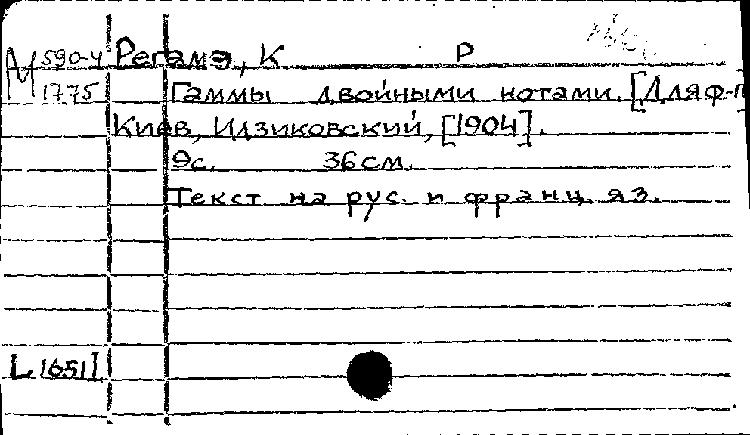 М 590-4 Регамэ, К Р
1775 Гаммы двойными нотами. [Для ф-п]
Киев, Идзиковский, [1904].
9с. 36см.
Текст на рус. и франц. яз.
[1651]